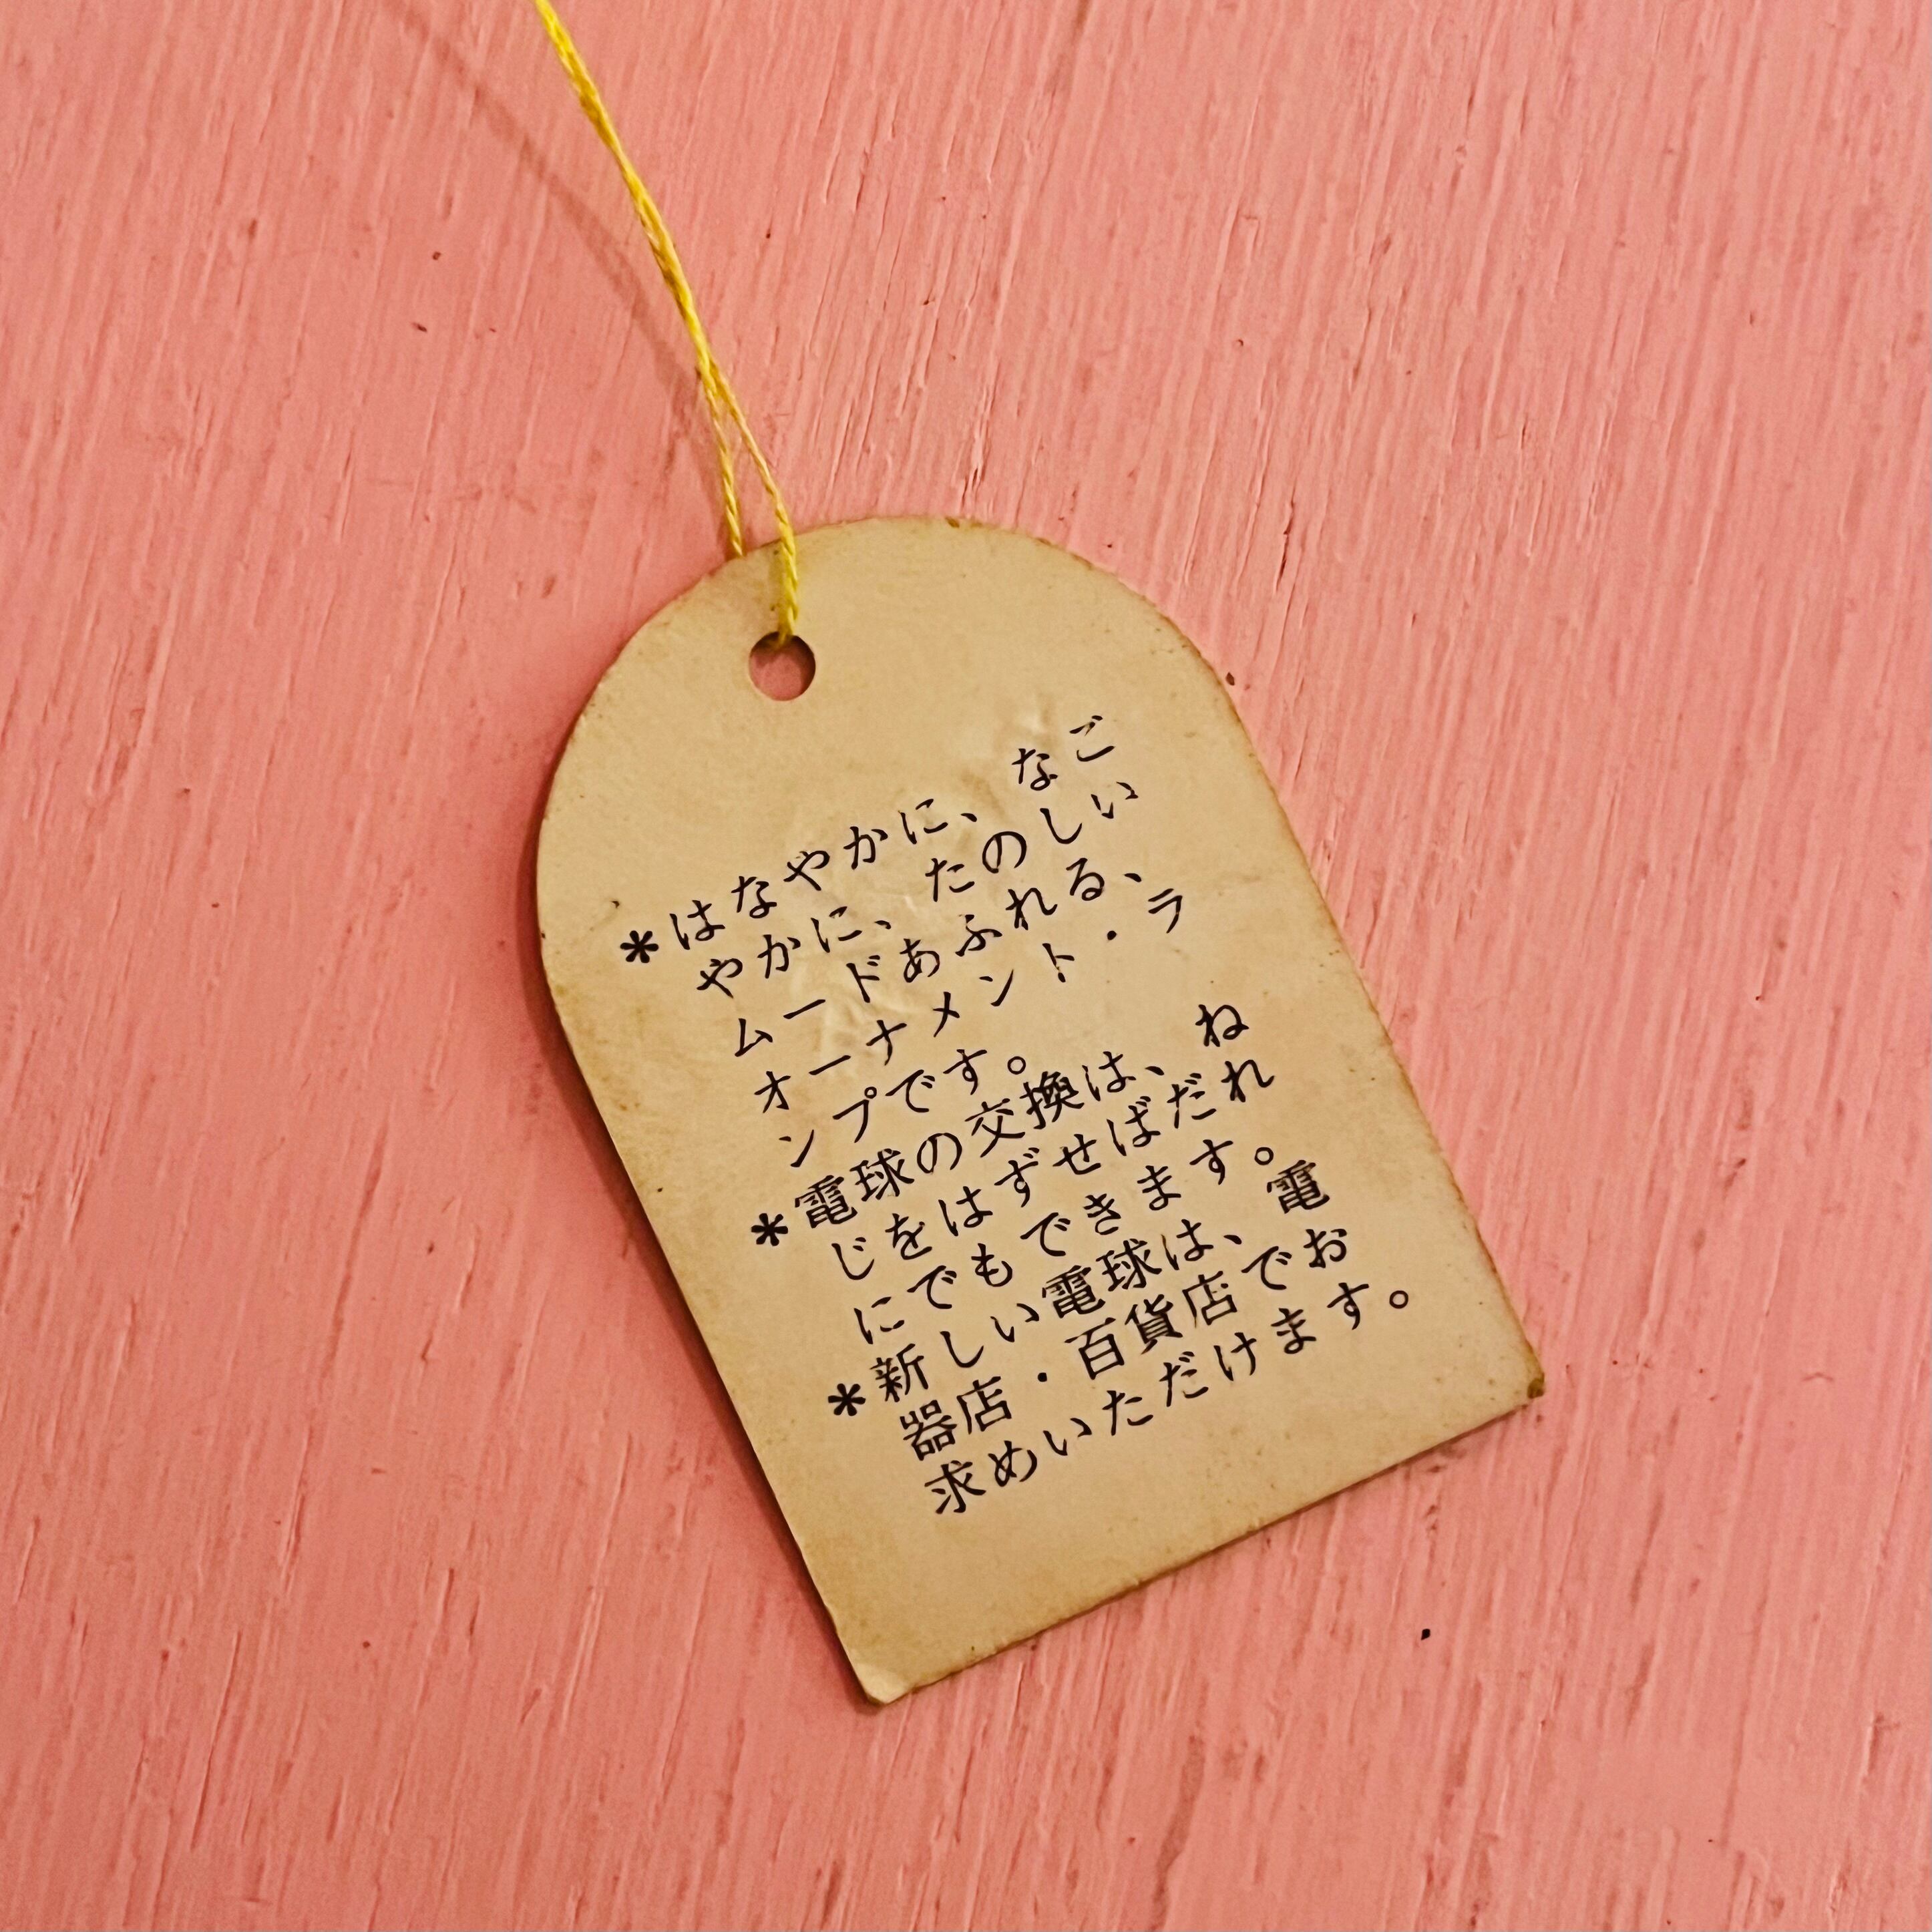 *はなやかに、なご
やかに、たのしい
ムードあふれる、
オーナメント・ラ
ンプです。
*電球の交換は、ね
じをはずせばだれ
にでもできます。
*新しい電球は、電
器店・百貨店でお
求めいただけます。